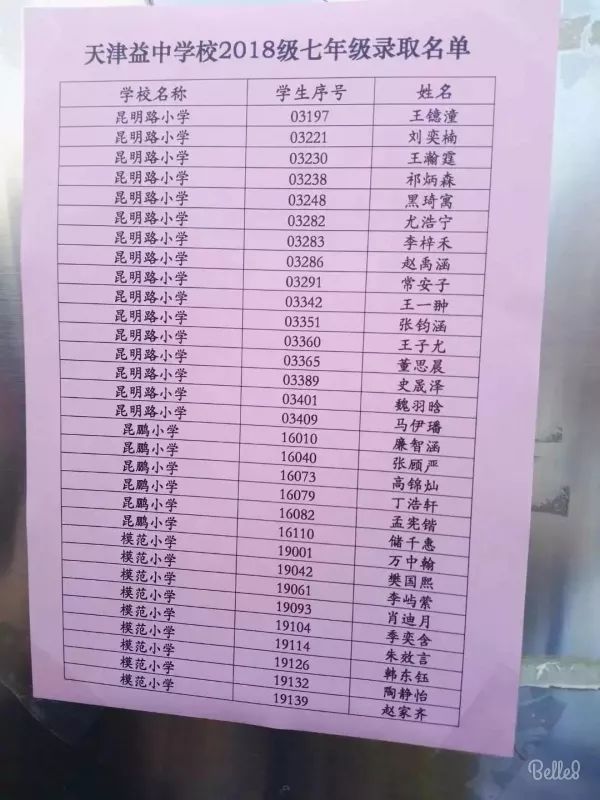 天津益中学校2018级七年级录取名单
学校名称 学生序号 姓名
昆明路小学 03197 王镱潼
昆明路小学 03221 刘奕楠
昆明路小学 03230 王瀚霆
昆明路小学 03238 祁炳森
昆明路小学 03248 黑琦寓
昆明路小学 03282 尤浩宁
昆明路小学 03283 李梓禾
昆明路小学 03286 赵禹涵
昆明路小学 03291 常安子
昆明路小学 03342 王一翀
昆明路小学 03351 张钧涵
昆明路小学 03360 王子尤
昆明路小学 03365 董思晨
昆明路小学 03389 史晟泽
昆明路小学 03401 魏羽晗
昆明路小学 03409 马伊璠
昆鹏小学 16010 廉智涵
昆鹏小学 16040 张顾严
昆鹏小学 16073 高锦灿
昆鹏小学 16079 丁浩轩
昆鹏小学 16082 孟宪锴
昆鹏小学 16110 储千惠
模范小学 19001 万中翰
模范小学 19042 樊国熙
模范小学 19061 李屿萦
模范小学 19093 肖迪月
模范小学 19104 季奕含
模范小学 19114 朱效言
模范小学 19126 韩东钰
模范小学 19132 陶静怡
模范小学 19139 赵家齐
Belle8